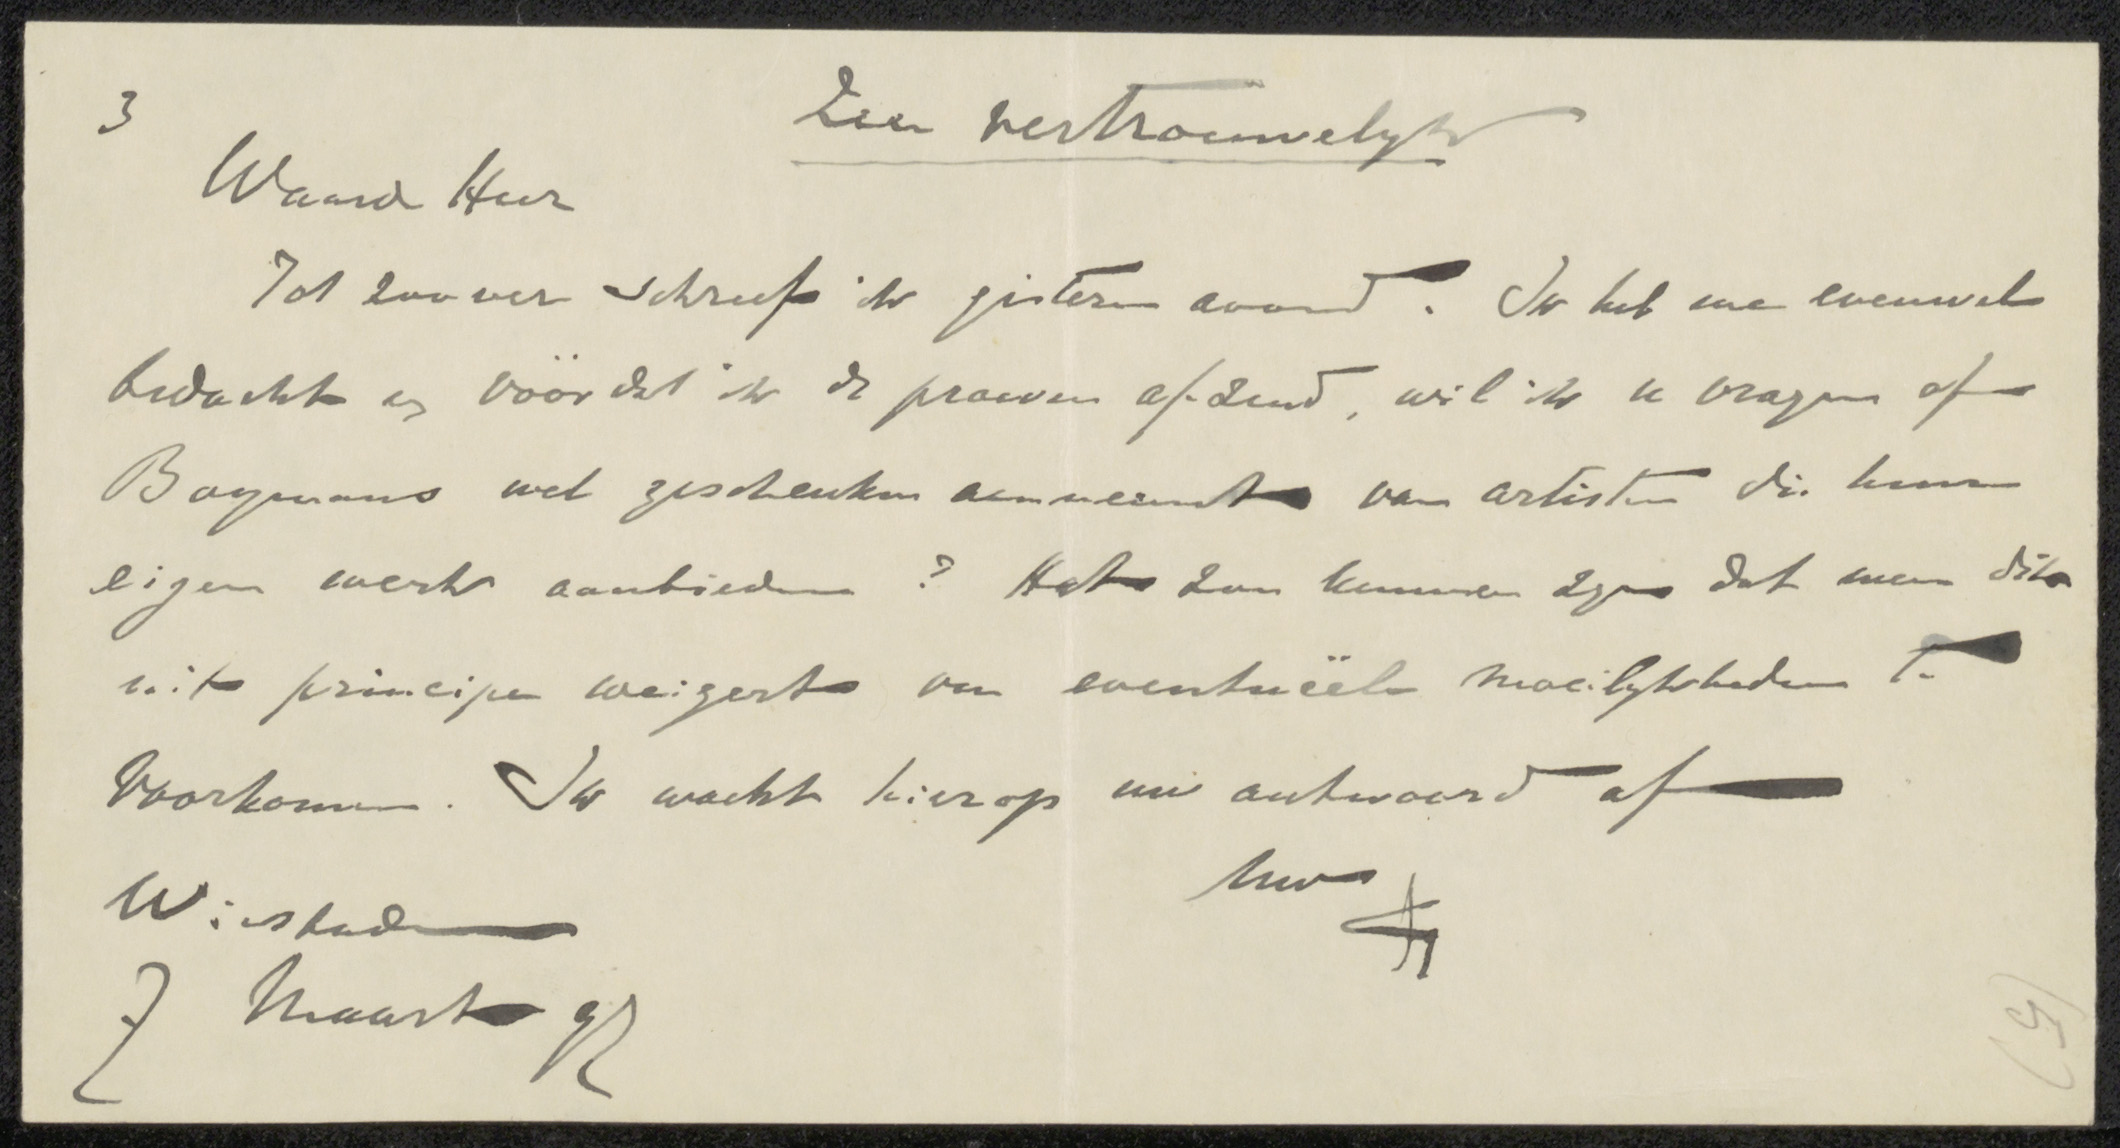 3
Zeer vertrouwelyk
Waarde Heer
Tot zoover schreef ik gisteren avond. Ik heb me evenwel
bedacht en vöördat ik de proeven afzend, wil ik u vragen of
Boymans wel geschenken aanneemt van artisten die hun
eigen werk aanbieden? Het zou kunnen zyn dat men dit
uit principe weigert om eventuëele moeilykheden te
voorkomen. Ik wacht hierop uw antwoord af
Uw
Wiesbaden
7 Maart 92
(5)